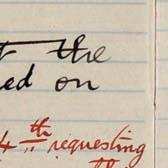 the
ed on
4th requesting